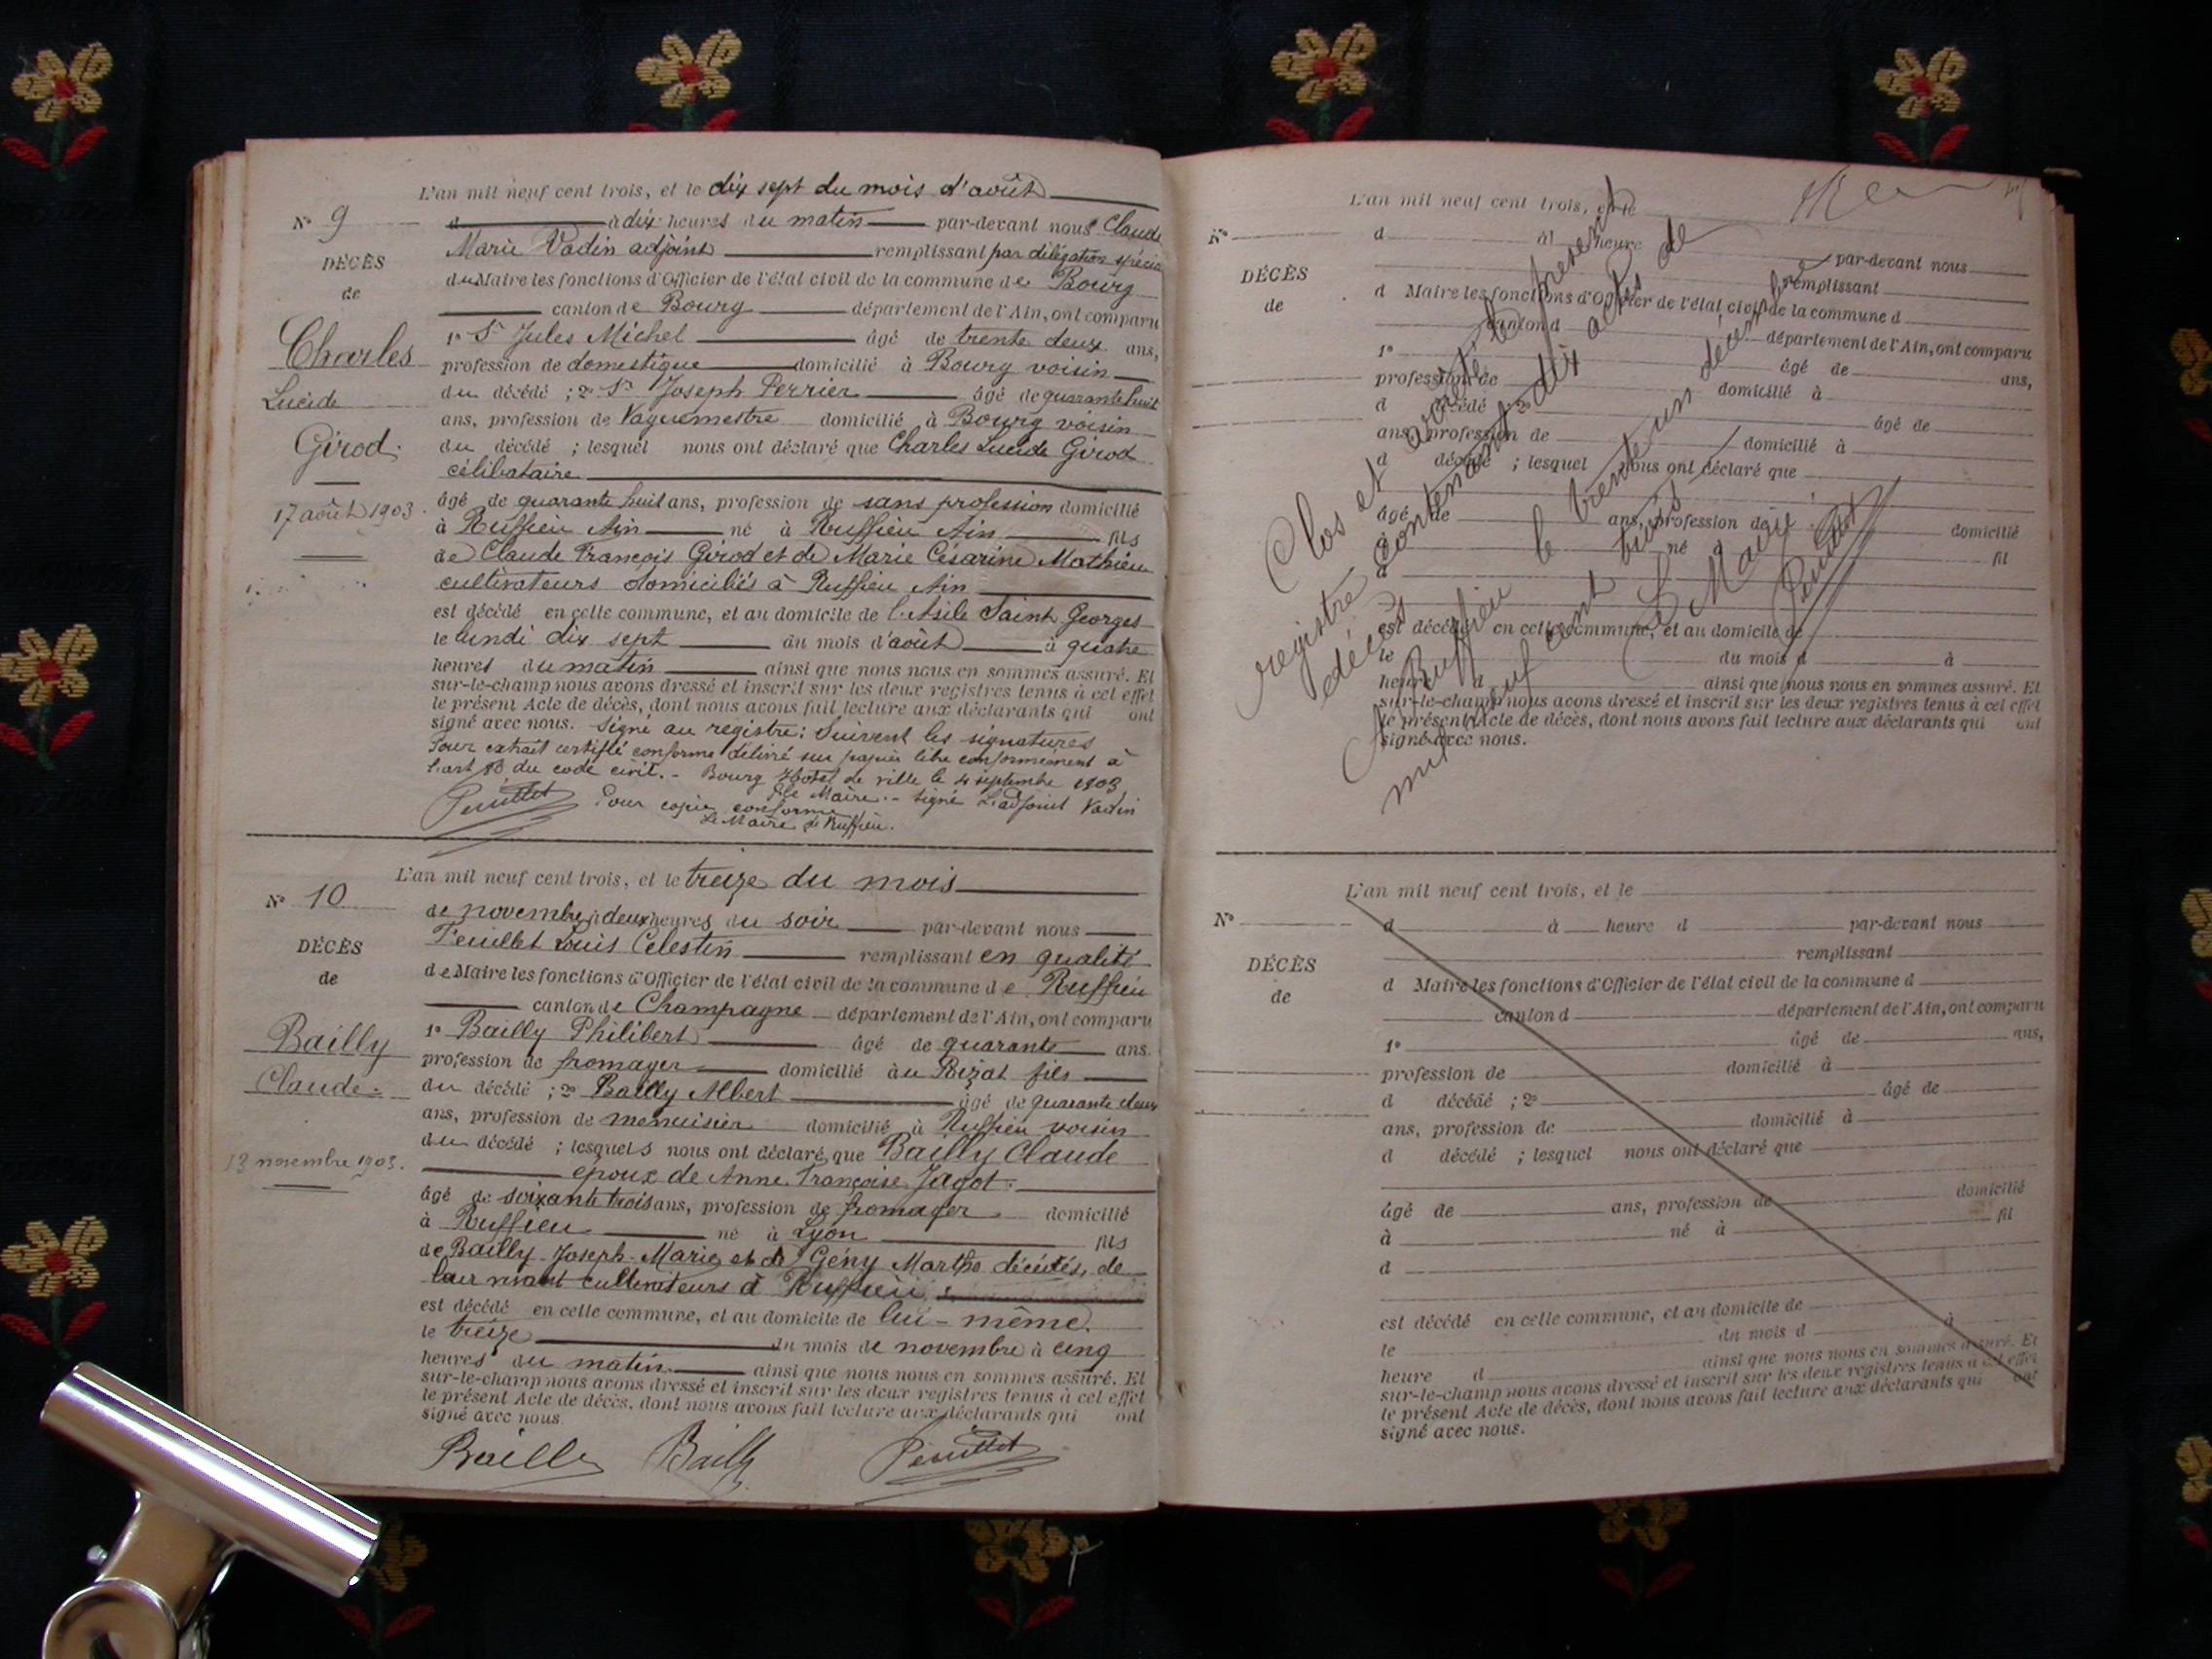 L'an mil neuf cent trois, et le dix sept du mois d'août
N° 9
d à dix heures du matin par-devant nous Claude
Marie Vadin adjoint remplissant par délégation spéciale
DÉCÈS
du Maire les fonctions d'Officier de l'état civil de la commune de Bourg
de
canton de Bourg département de l'Ain, ont comparu
Charles
1° Sr Jules Michel âgé de trente deux ans,
profession de domestique domicilié à Bourg voisin
Lucide
du décédé ; 2° Sr Joseph Perrier âgé de quarante huit
ans, profession de Vaguemestre domicilié à Bourg voisin
Girod.
du décédé ; lesquel nous ont déclaré que Charles Lucide Girod
célibataire
17 août 1903.
âgé de quarante huit ans, profession de sans profession domicilié
à Ruffieu Ain né à Ruffieu Ain fils
de Claude François Girod et de Marie Césarine Mathieu
cultivateurs domiciliés à Ruffieu Ain
est décédé en cette commune, et au domicile de l'Asile Saint Georges
le lundi dix sept du mois d'août à quatre
heures du matin ainsi que nous nous en sommes assuré. Et
sur-le-champ nous avons dressé et inscrit sur les deux registres tenus à cet effet
le présent Acte de décès, dont nous avons fait lecture aux déclarants qui ont
signé avec nous. Signé au registre : Suivent les signatures
Pour extrait certifié conforme délivré sur papier libre conformément à
l'art du code civil. - Bourg Hotel de ville le 4 septembre 1903
Le Maire. - Signé L'adjoint Vadin
Peuillet Pour copie conforme
Le Maire de Ruffieu.
L'an mil neuf cent trois, et le treize du mois
N° 10
de novembre à deux heures du soir par-devant nous
Peuillet Louis Célestin remplissant en qualité
DÉCÈS
de Maire les fonctions d'Officier de l'état civil de la commune de Ruffieu
de
canton de Champagne département de l'Ain, ont comparu
Bailly
1° Bailly Philibert âgé de quarante ans.
profession de fromager domicilié au Bizat fils
Claude.
du décédé ; 2° Bailly Albert âgé de quarante deux
ans, profession de menuisier domicilié à Ruffieu voisin
du décédé ; lesquels nous ont déclaré que Bailly Claude
13 novembre 1903.
époux de Anne Françoise Jagot.
âgé de soixante trois ans, profession de fromager domicilié
à Ruffieu né à Lyon fils
de Bailly Joseph-Marie et de Gény Marthe décédés, de
leur vivant cultivateurs à Ruffieu
est décédé en cette commune, et au domicile de lui-même.
le treize du mois de novembre à cinq
heures du matin ainsi que nous nous en sommes assuré. Et
sur-le-champ nous avons dressé et inscrit sur les deux registres tenus à cet effet
le présent Acte de décès, dont nous avons fait lecture aux déclarants qui ont
signé avec nous.
Bailly Bailly Peuillet
L'an mil neuf cent trois, et le
N°
d à heure d par-devant nous
remplissant
DÉCÈS
d Maire les fonctions d'Officier de l'état civil de la commune d
de
canton d département de l'Ain, ont comparu
1° âgé de ans,
profession de domicilié à
d décédé ; 2° âgé de
ans, profession de domicilié à
d décédé ; lesquel nous ont déclaré que
âgé de ans, profession de domicilié
à né à fil
d
est décédé en cette commune, et au domicile de
le du mois d à
heure d ainsi que nous nous en sommes assuré. Et
sur-le-champ nous avons dressé et inscrit sur les deux registres tenus à cet effet
le présent Acte de décès, dont nous avons fait lecture aux déclarants qui ont
signé avec nous.
Clos et arrêté le présent
registre contenant dix actes de
décès
A Ruffieu le trente un décembre
mil neuf cent trois
Le Maire
Peuillet
L'an mil neuf cent trois, et le
N°
d à heure d par-devant nous
remplissant
DÉCÈS
d Maire les fonctions d'Officier de l'état civil de la commune d
de
canton d département de l'Ain, ont comparu
1° âgé de ans,
profession de domicilié à
d décédé ; 2° âgé de
ans, profession de domicilié à
d décédé ; lesquel nous ont déclaré que
âgé de ans, profession de domicilié
à né à fil
d
est décédé en cette commune, et au domicile de
le du mois d à
heure d ainsi que nous nous en sommes assuré. Et
sur-le-champ nous avons dressé et inscrit sur les deux registres tenus à cet effet
le présent Acte de décès, dont nous avons fait lecture aux déclarants qui ont
signé avec nous.